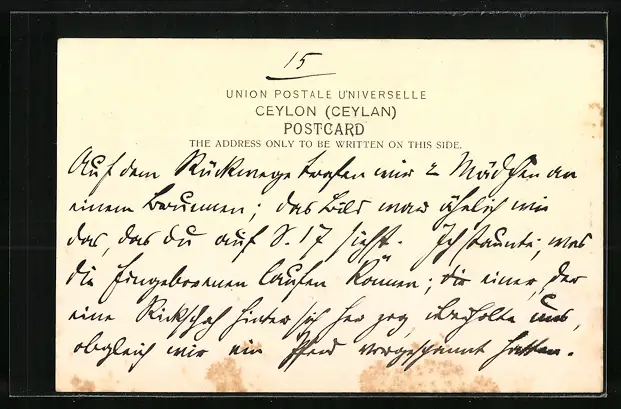 15
UNION POSTALE UNIVERSELLE
CEYLON (CEYLAN)
POSTCARD
THE ADDRESS ONLY TO BE WRITTEN ON THIS SIDE.
Auf dem Rückwege trafen wir 2 Mädchen an
einem Brunnen; das Bild war ähnlich wie
das, das du auf S. 17 siehst. Ich staunte, was
die Eingeborenen laufen können; die einer, der
eine Rickschah hinter sich her zog überholte uns,
obgleich wir ein Pferd vorgespannt hatten.